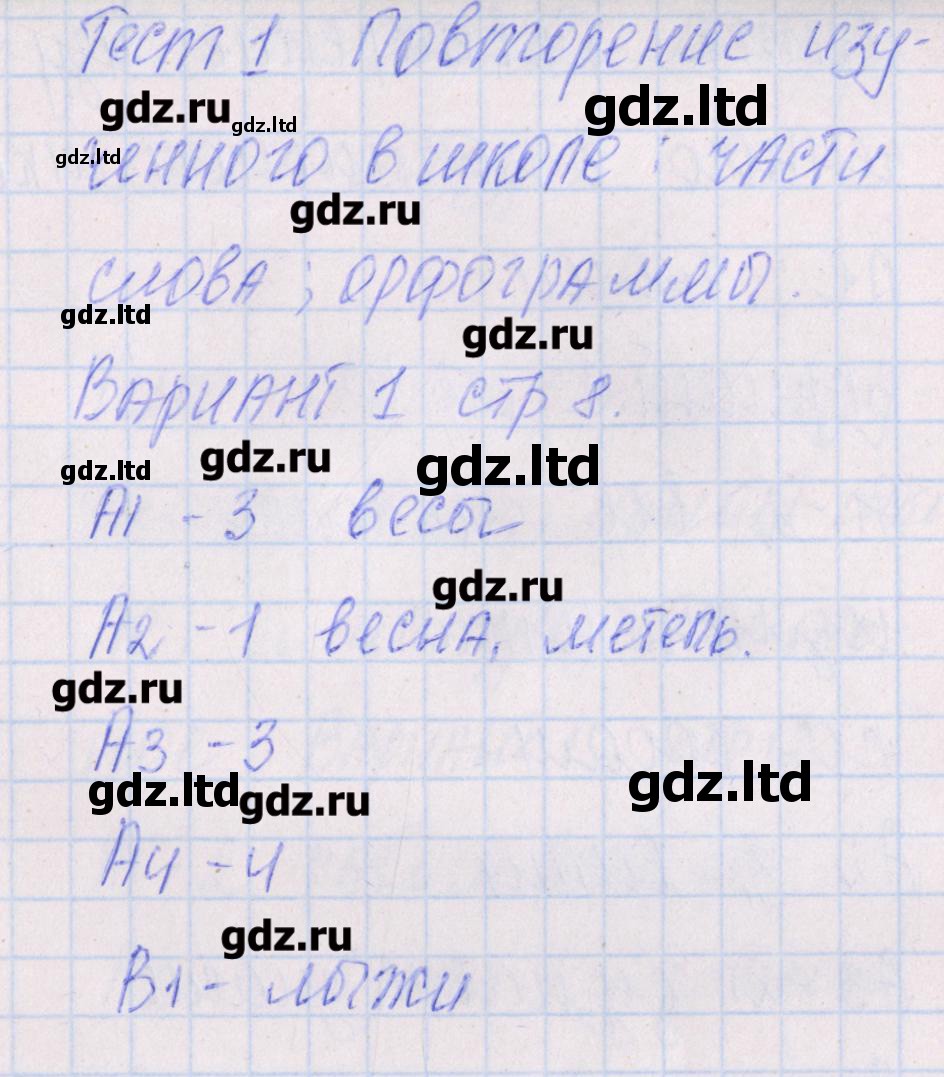 Тест 1 Повторение изу-
gdz.ru
gdz.ltd
gdz.ltd
ченного в школе: части
gdz.ltd
gdz.ru
слова; орфограммы.
gdz.ltd
gdz.ru
Вариант 1 стр 8.
gdz.ltd
gdz.ru
gdz.ltd
А1 - 3 весы
gdz.ru
А2 - 1 весна, метель.
gdz.ru
А3 - 3
gdz.ltd
gdz.ru
gdz.ltd
А4 - 4
gdz.ru
В1 - лыжи